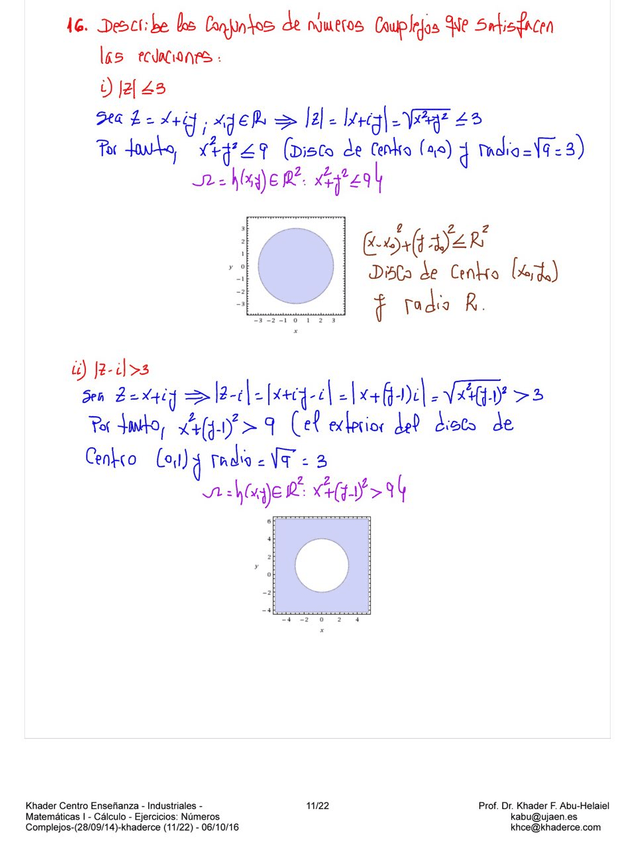 16. Describe los conjuntos de números complejos que satisfacen
las ecuaciones:
i) |z| ≤ 3
Sea z = x+iy ; x,y ∈ ℝ ⟹ |z| = |x+iy| = √x²+y² ≤ 3
Por tanto, x²+y² ≤ 9 (Disco de centro (0,0) y radio = √9 = 3)
Ω = {(x,y) ∈ ℝ²: x²+y² ≤ 9}
3
2
1
y 0
-1
-2
-3
-3 -2 -1 0 1 2 3
x
(x-x₀)²+(y-y₀)² ≤ R²
Disco de centro (x₀,y₀)
y radio R.
ii) |z-i| > 3
Sea z = x+iy ⟹ |z-i| = |x+iy-i| = |x+(y-1)i| = √x²+(y-1)² > 3
Por tanto, x²+(y-1)² > 9 (el exterior del disco de
centro (0,1) y radio = √9 = 3
Ω = {(x,y) ∈ ℝ²: x²+(y-1)² > 9}
6
4
2
y 0
-2
-4
-4 -2 0 2 4
x
Khader Centro Enseñanza - Industriales -
Matemáticas I - Cálculo - Ejercicios: Números
Complejos-(28/09/14)-khaderce (11/22) - 06/10/16
11/22
Prof. Dr. Khader F. Abu-Helaiel
kabu@ujaen.es
khce@khaderce.com